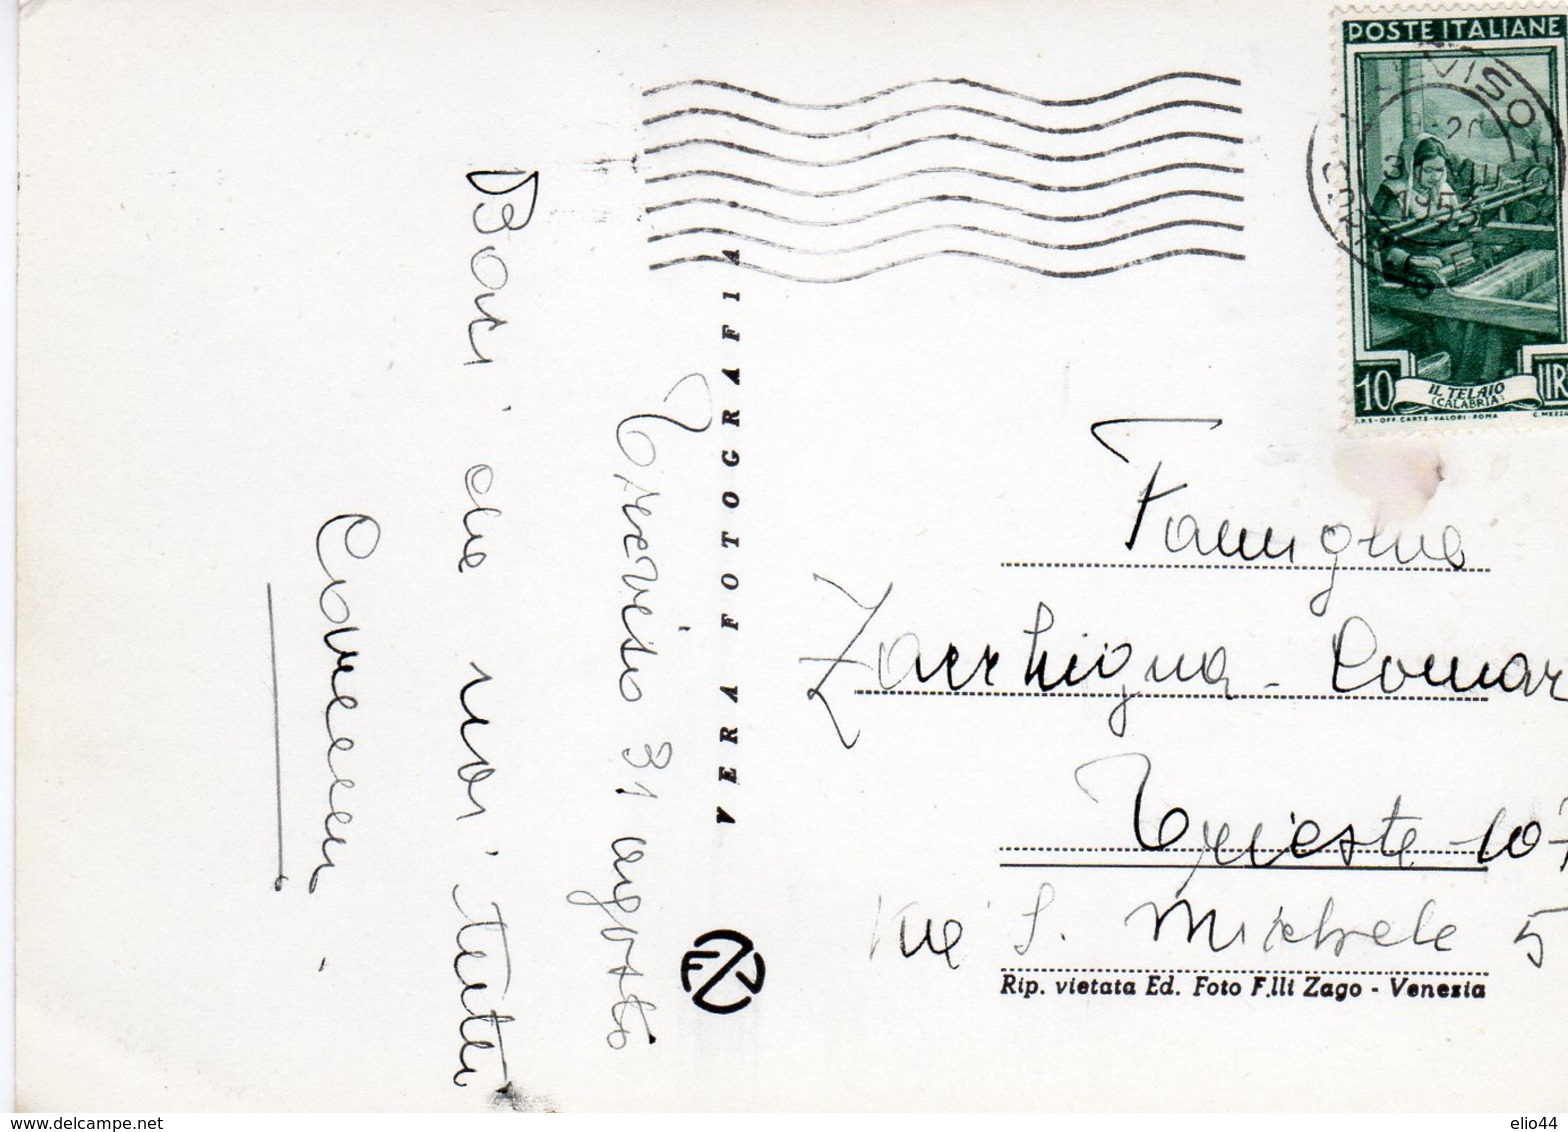 Treviso 31 agosto
Baci da noi tutti
VERA FOTOGRAFIA
POSTE ITALIANE
1953
10 LIR
IL TELAIO
(CALABRIA)
I.P.S-OFF. CARTE-VALORI-ROMA C. MEZZA
Famiglia
Zacchigna - Comar
Trieste - 107
Via S. Michele 5
Rip. vietata Ed. Foto F.lli Zago - Venezia
delcampe.net
elio44